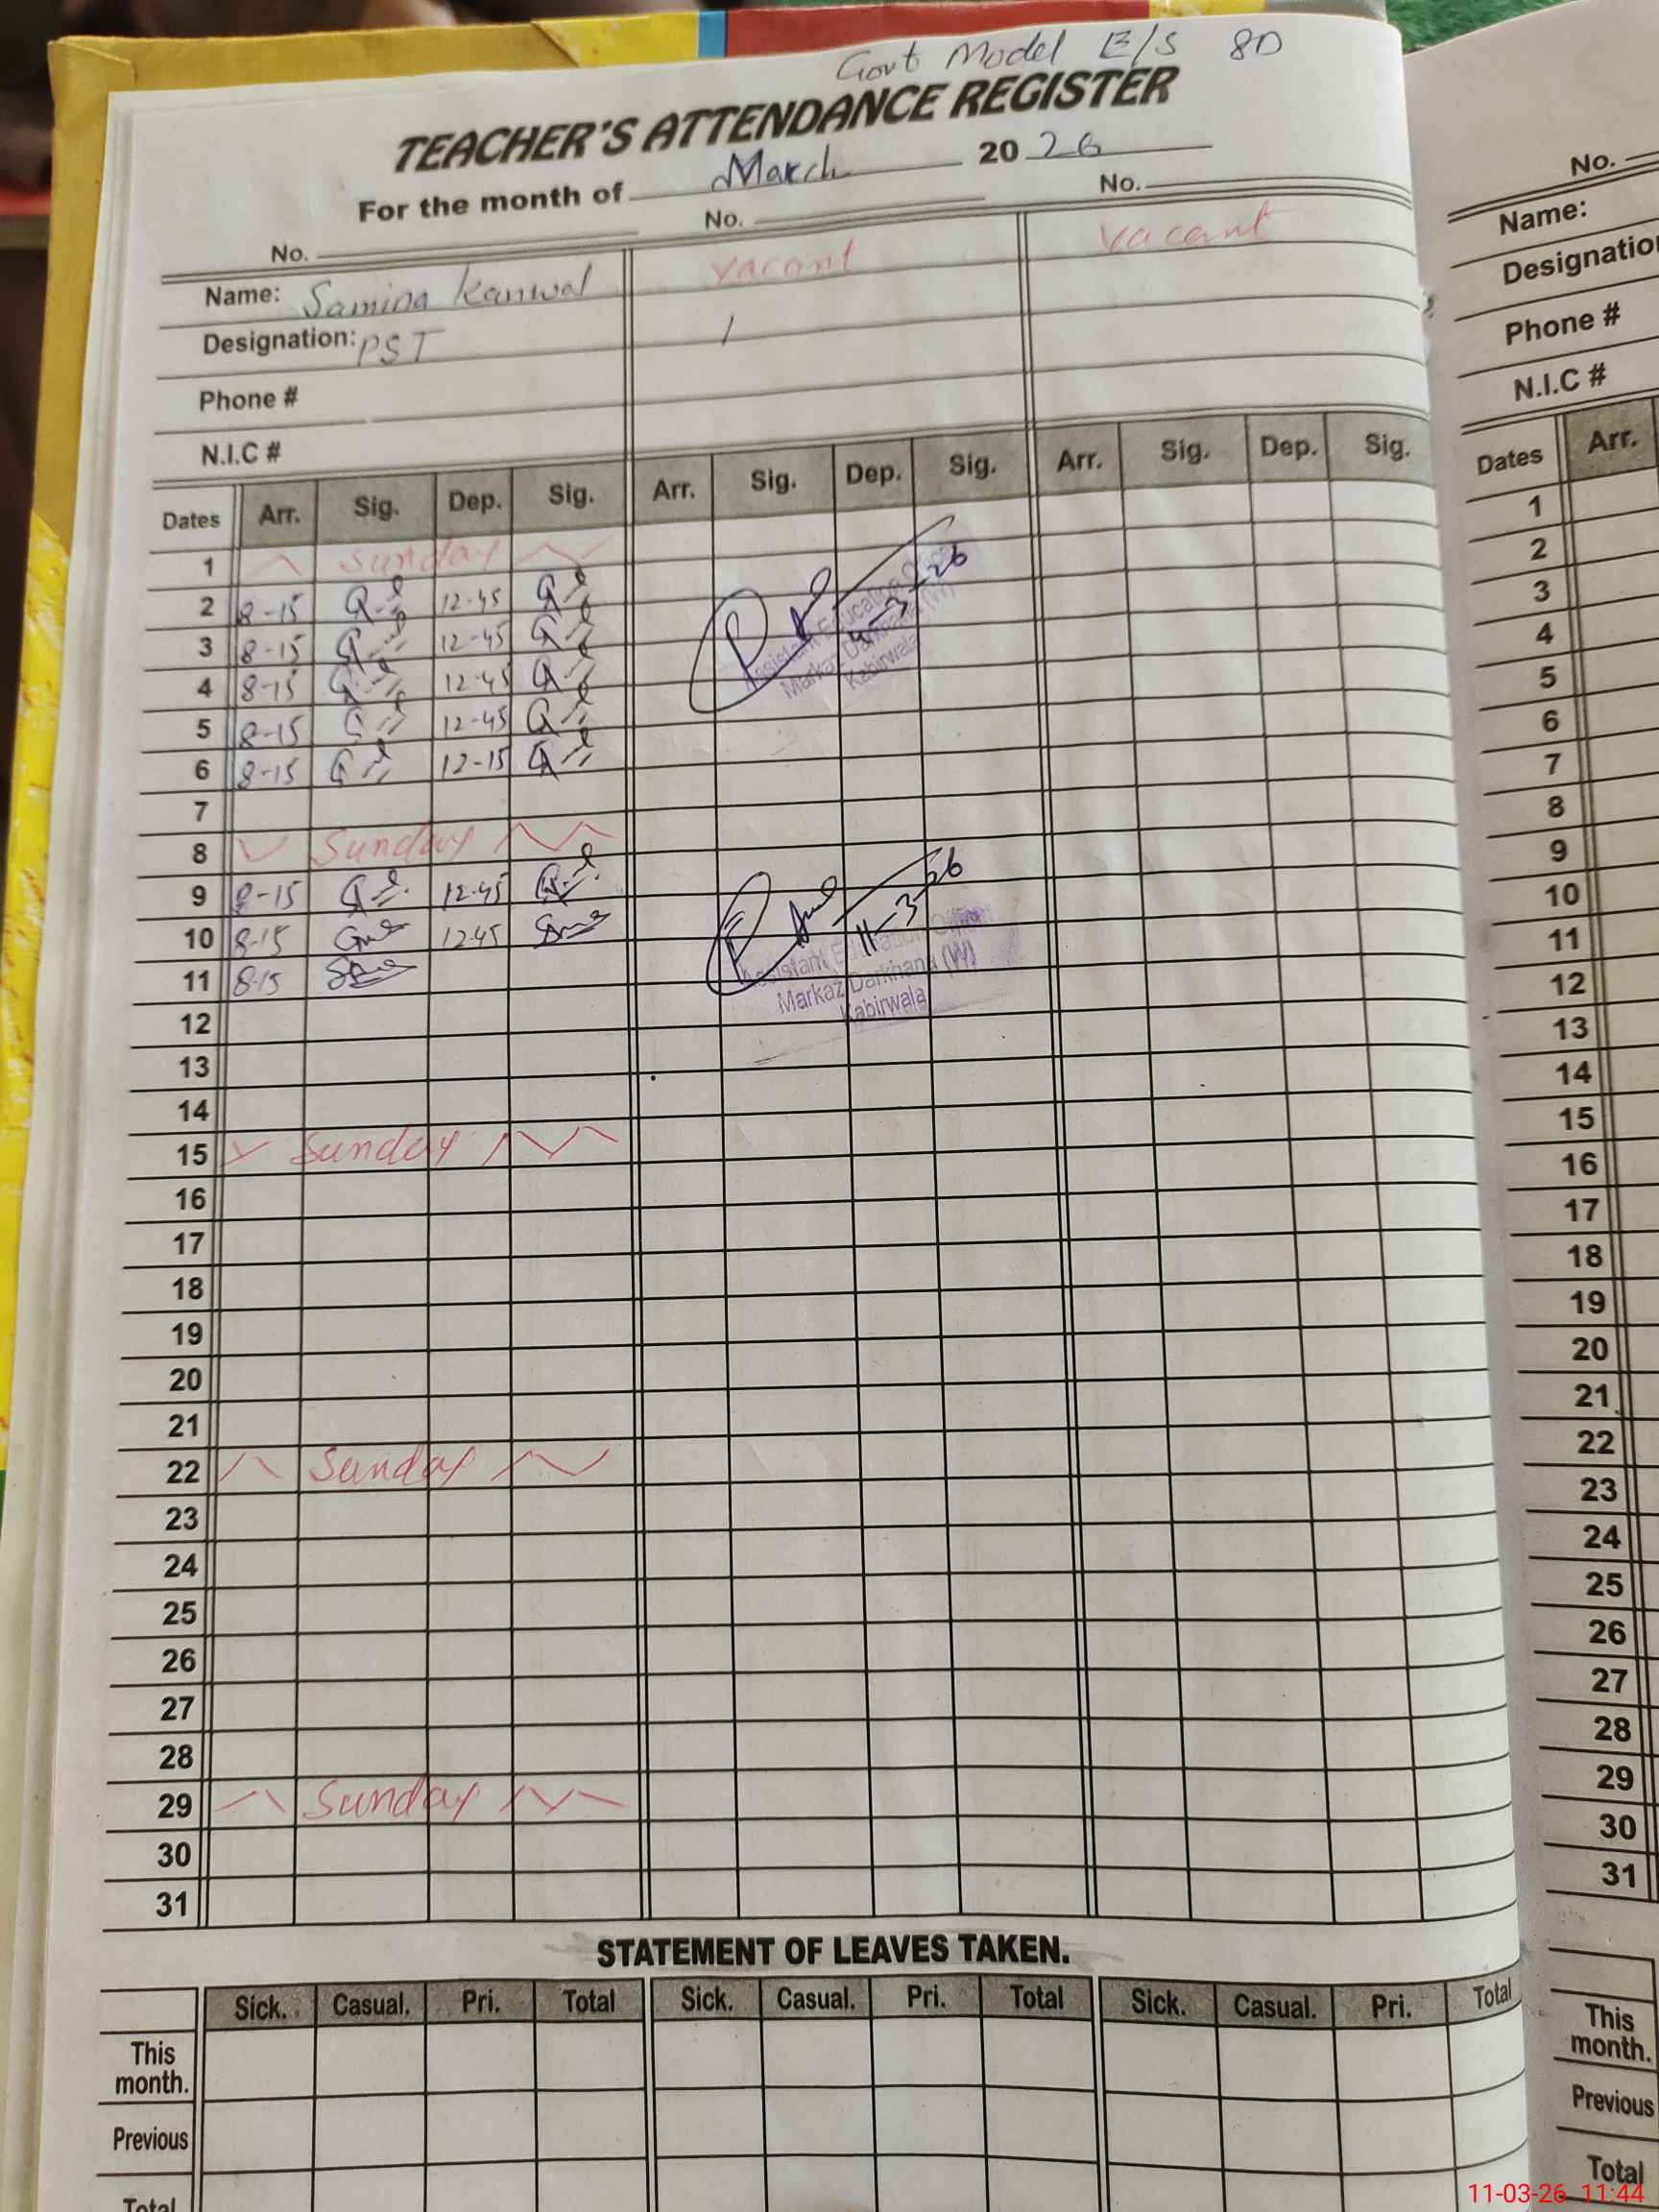 Govt Model E/S 8D
TEACHER'S ATTENDANCE REGISTER
For the month of March 2026
No. No. No.
Name: Samina Kanwal vacant vacant
Designation: PST
Phone #
N.I.C #
Dates Arr. Sig. Dep. Sig. Arr. Sig. Dep. Sig. Arr. Sig. Dep. Sig.
1 Sunday
2 8-15 12-45
3 8-15 12-45
4 8-15 12-45
5 8-15 12-45
6 8-15 12-15
7
8 Sunday
9 8-15 12-45
10 8-15 12-45
11 8-15
12
13
14
15 Sunday
16
17
18
19
20
21
22 Sunday
23
24
25
26
27
28
29 Sunday
30
31
4-3-26
Assistant Education Officer
Markaz Darkhana (W)
Kabirwala
11-3-26
Assistant Education Officer
Markaz Darkhana (W)
Kabirwala
STATEMENT OF LEAVES TAKEN.
Sick. Casual. Pri. Total Sick. Casual. Pri. Total Sick. Casual. Pri. Total
This
month.
Previous
Total
No.
Name:
Designatio
Phone #
N.I.C #
Dates Arr.
1
2
3
4
5
6
7
8
9
10
11
12
13
14
15
16
17
18
19
20
21
22
23
24
25
26
27
28
29
30
31
This
month.
Previous
Total
11-03-26 11:44